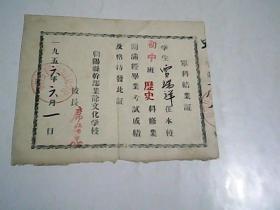 單科結業証
学生雪瑞祥在本校
初中班歷史科修業
期滿經畢業考試成績
及格特發此証
朝陽縣幹部業餘文化學校
校長
一九五六年六月一日